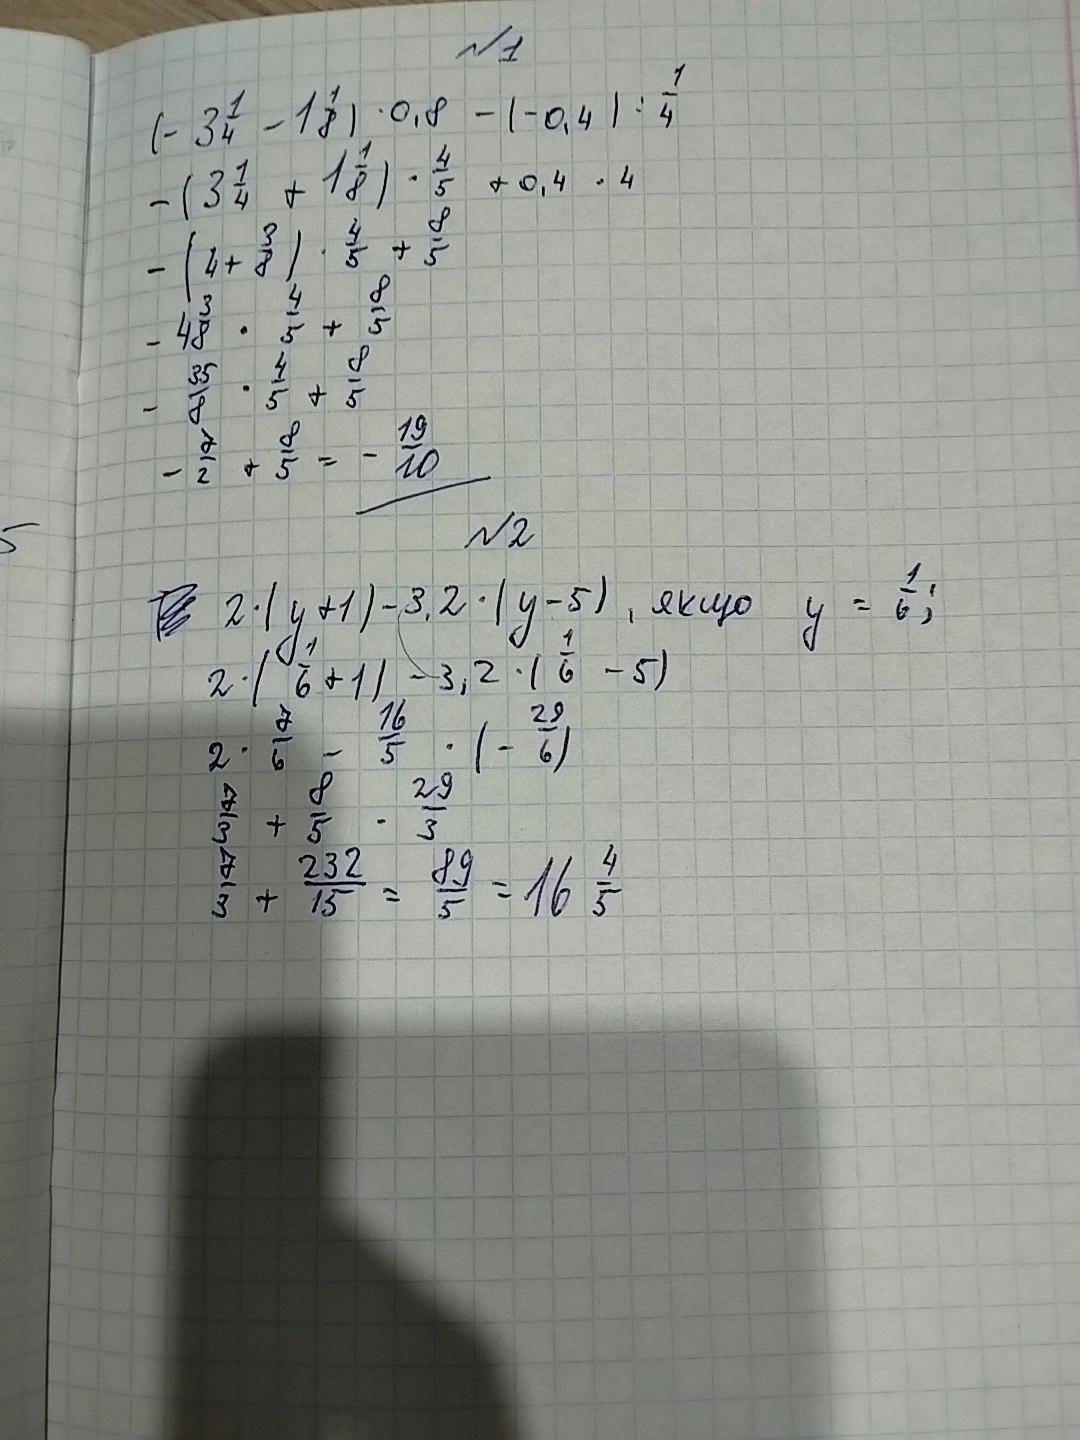 №1
(- 3 1/4 - 1 1/8) · 0,8 - (-0,4) : 1/4
- (3 1/4 + 1 1/8) · 4/5 + 0,4 · 4
- (4 + 3/8) · 4/5 + 8/5
- 4 3/8 · 4/5 + 8/5
- 35/8 · 4/5 + 8/5
- 7/2 + 8/5 = - 19/10
5
№2
2·(y+1)-3,2·(y-5), якщо y = 1/6;
2·(1/6+1) - 3,2·(1/6 - 5)
2 · 7/6 - 16/5 · (- 29/6)
7/3 + 8/5 · 29/3
7/3 + 232/15 = 89/5 = 16 4/5